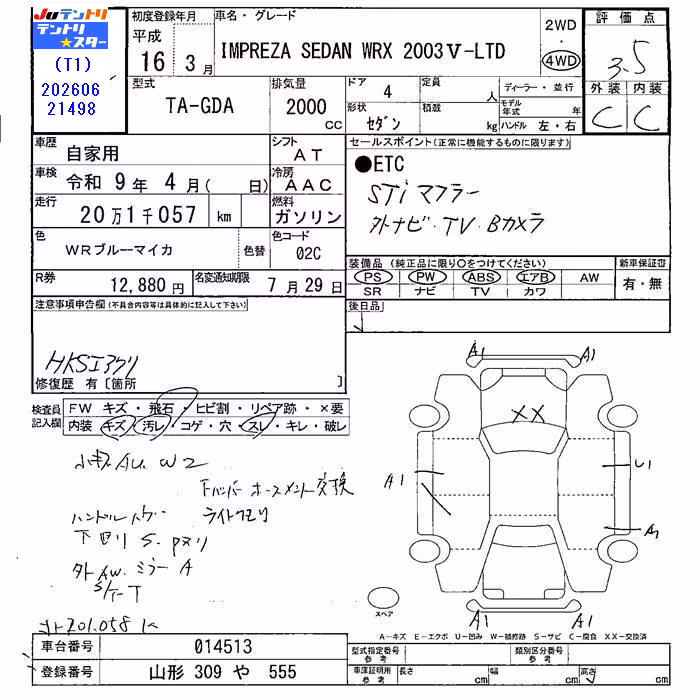 JUテントリ
テントリ★スター
(T1)
202606
21498
初度登録年月
平成
16年 3月
車名・グレード
IMPREZA SEDAN WRX 2003V-LTD
2WD
・
4WD
評価点
3.5
外装 内装
C C
型式
TA-GDA
排気量
2000
CC
ドア
4
形状
セダン
定員
人
積載
kg
ディーラー・並行
モデル年式 年
ハンドル 左・右
車歴
自家用
シフト
AT
車検
令和 9年 4月( 日)
冷房
AAC
走行
20万1千057 km
燃料
ガソリン
色
WRブルーマイカ
色替
色コード
02C
R券
12,880円
名変通知期限
7月29日
セールスポイント(正常に機能するものに限ります)
●ETC
STiマフラー
外ナビ・TV・Bカメラ
装備品 (純正品に限り○をつけてください)
PS PW ABS エアB AW
SR ナビ TV カワ
新車保証書
有・無
後日品
注意事項申告欄(不具合内容等は具体的に記入して下さい)
HKSエアクリ
修復歴 有〔箇所 〕
検査員記入欄
FW キズ・飛石・ヒビ割・リペア跡・×要
内装 キズ・汚レ・コゲ・穴・スレ・キレ・破レ
小キズAU W2
交換
ライトクモリ
下回りS・Pヌリ
外AW・ミラーA
A1 A1
XX
A1
U1
A1 A1
スペア
A-キズ E-エクボ U-凹み W-補修跡 S-サビ C-腐食 XX-交換済
車台番号
014513
登録番号
山形 309 や 555
型式指定番号
参考
類別区分番号
参考
車庫証明用
参考
長さ cm
幅 cm
高さ cm